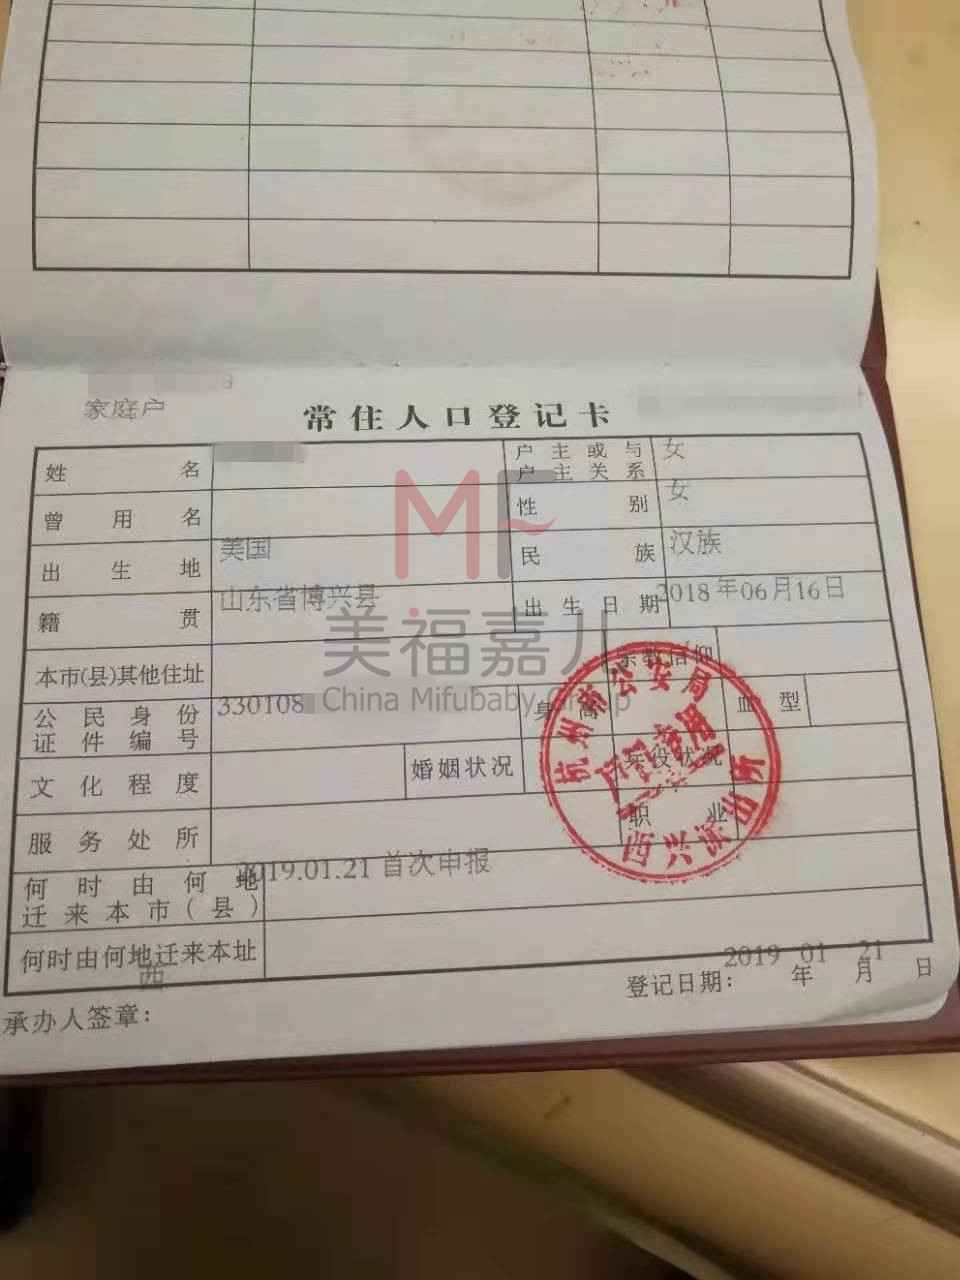 家庭户
常住人口登记卡
姓名
户主或与户主关系 女
曾用名
性别 女
出生地 美国
民族 汉族
籍贯 山东省博兴县
出生日期 2018年06月16日
本市(县)其他住址
宗教信仰
公民身份证件编号 330108
身高
血型
文化程度
婚姻状况
兵役状况
服务处所
职业
何时由何地迁来本市(县) 2019.01.21 首次申报
何时由何地迁来本址
西
承办人签章:
登记日期: 2019年01月21日
MF
美福嘉儿
China Mifubaby Group
杭州市公安局
户口专用
西兴派出所